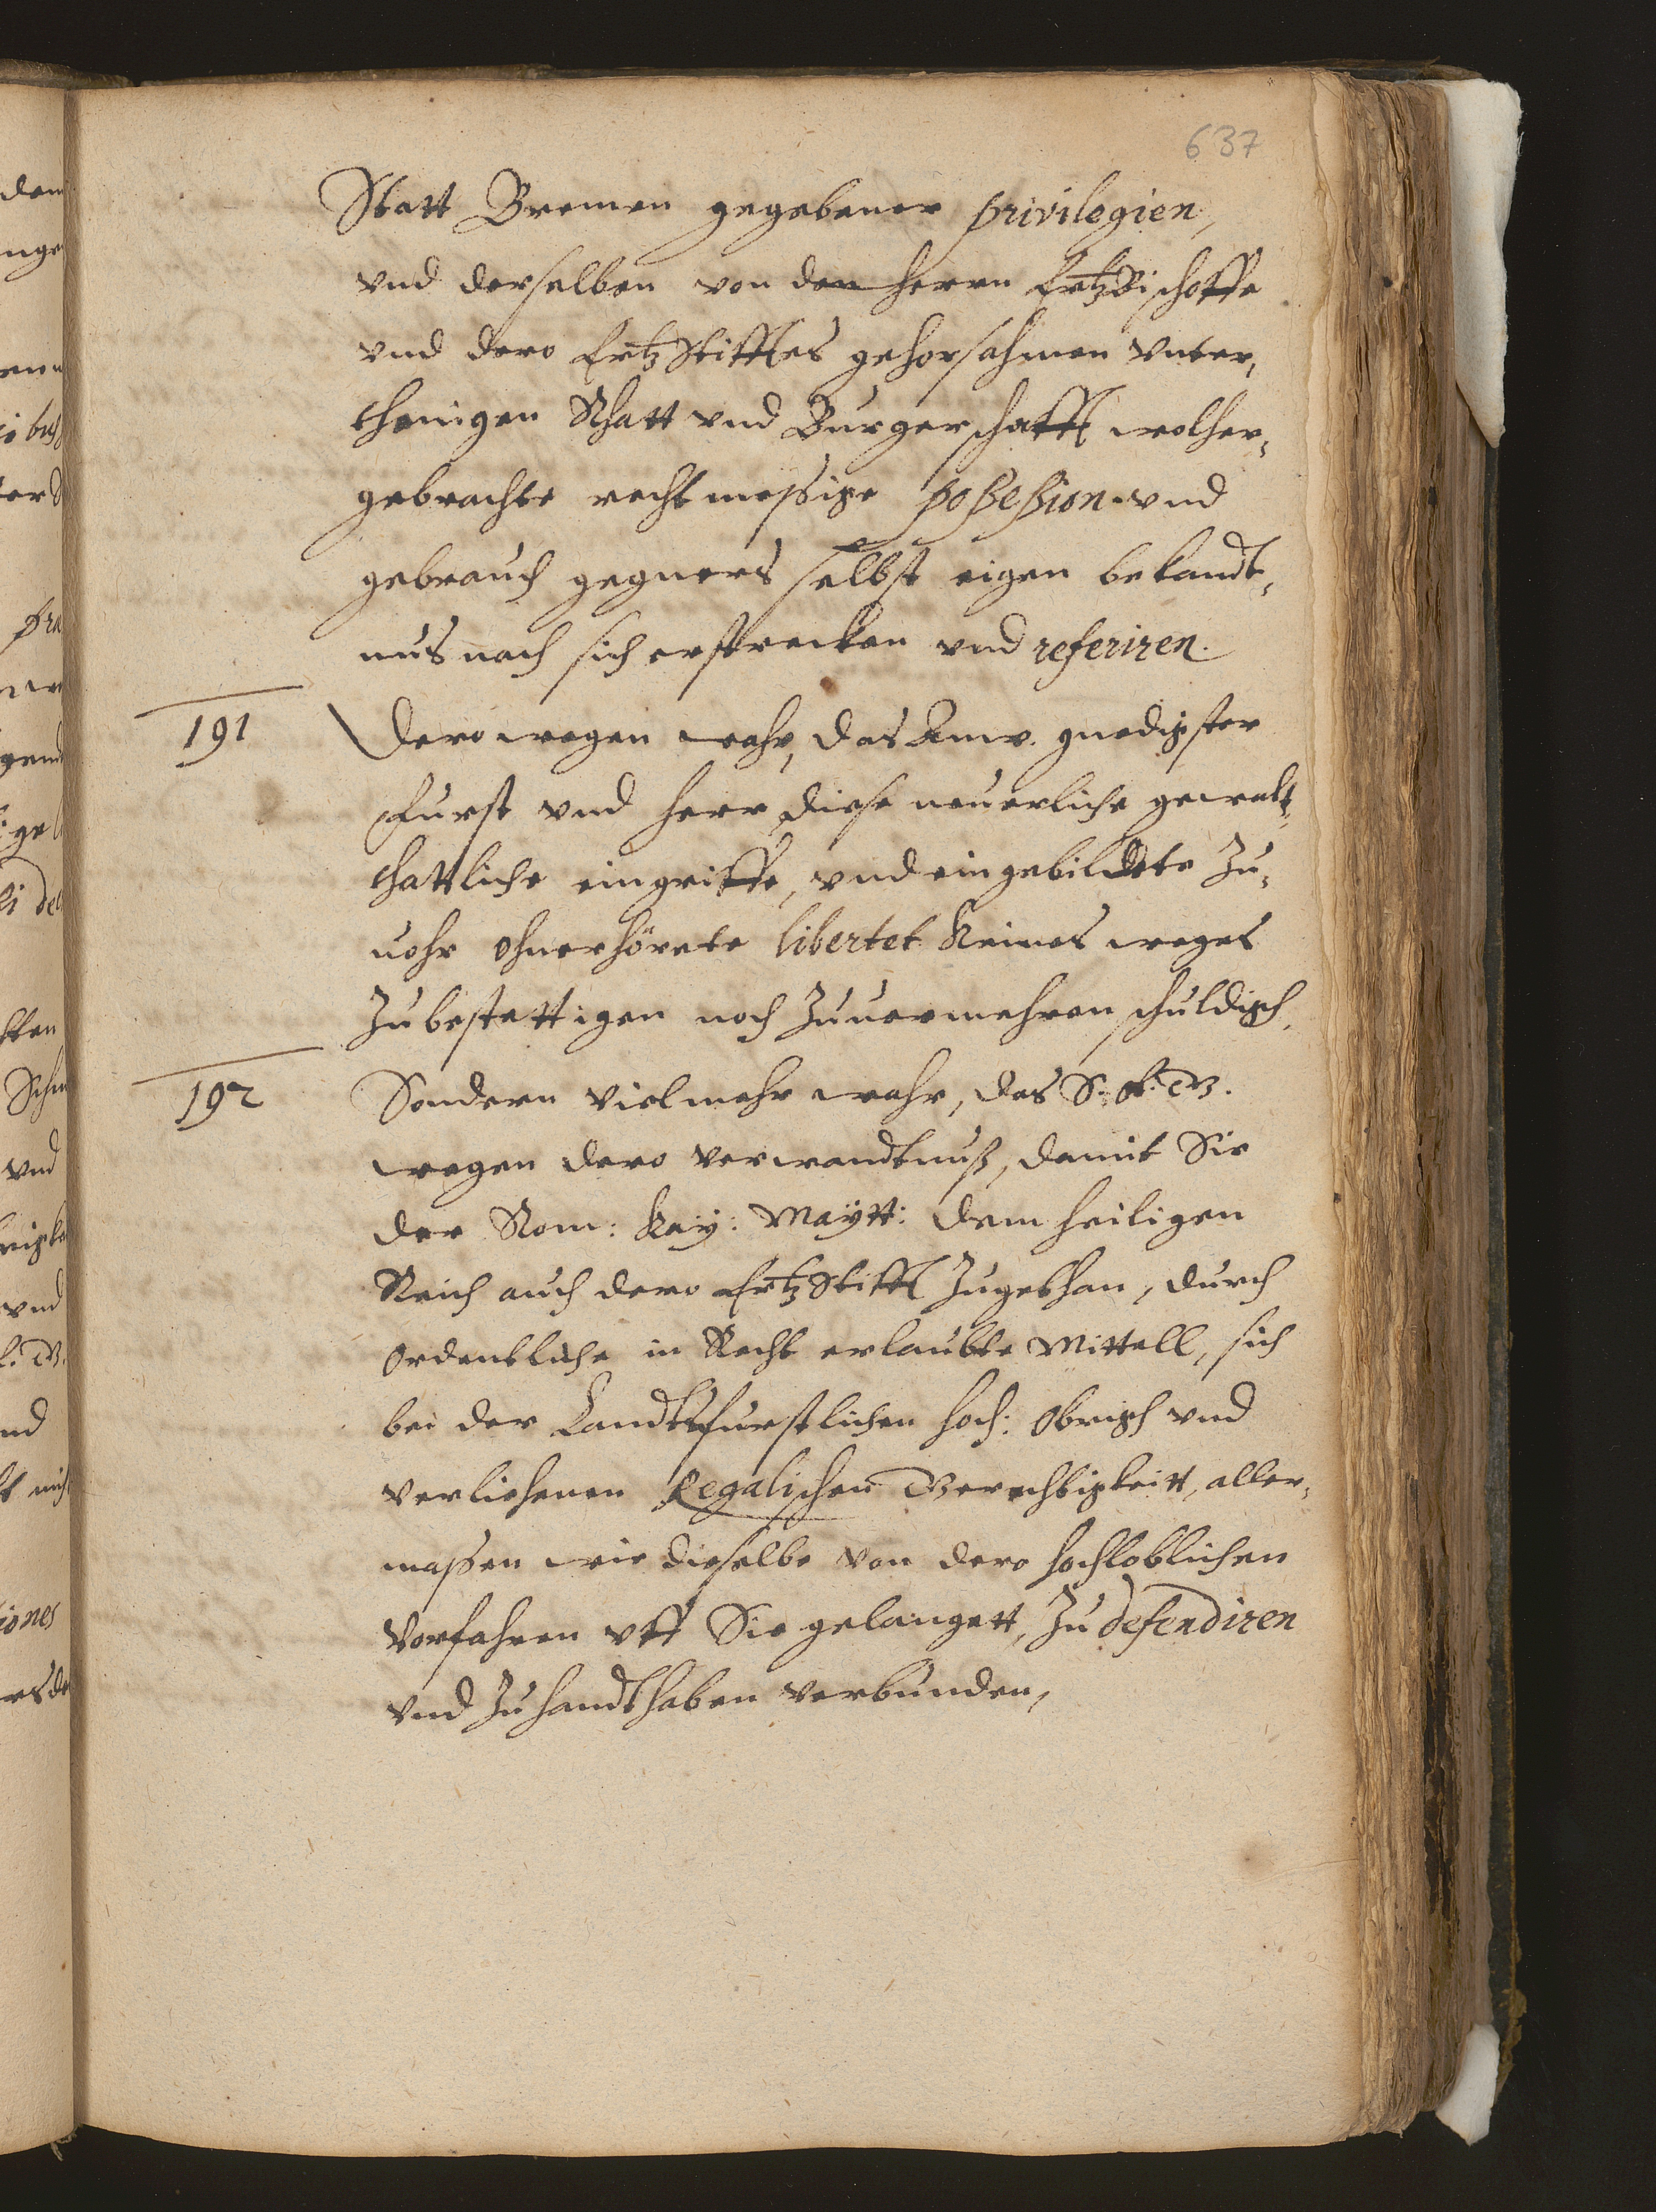 637
Statt Bremen gegebener privilegien,
vnd derselben von den Herrn ErtzBischoffe
vnd dero ErtzStifftes gehorsahmen vnter,
thenigen Rhatt vnd Burgerschafft wolher,
gebrachte rechtmessige possession vnd
gebrauch gegners selbst eigen bekandt,
nus nach sich erstrecken vnd referiren.
191
Dero wegen wahr, das Anw. gnedigster
Furst vnd Herr diese neuerliche gewalt,
thattliche eingriffe, vnd eingebildete Zu,
uohr ohnerhörete libertet Keines weges
Zubestettigen noch Zuuermehren schuldigh,
192
Sondern Vielmehr wahr, das S. F. G.
wegen dero verwandtnuß, damit Sie
der Rom: Kay: Maytt: dem heiligen
Reich auch dero ErtzStifft Zugethan, durch
ordentliche in Recht erlaubte Mittell, sich
bei der Landtsfurstlichen hoch: Obrigh vnd
verliehenen Regalischen Gerechtigkeitt, aller,
massen wie dieselbe von dero hochloblichen
Vorfahren vff Sie gelangett, Zu defendiren
vnd Zuhandthaben verbunden,